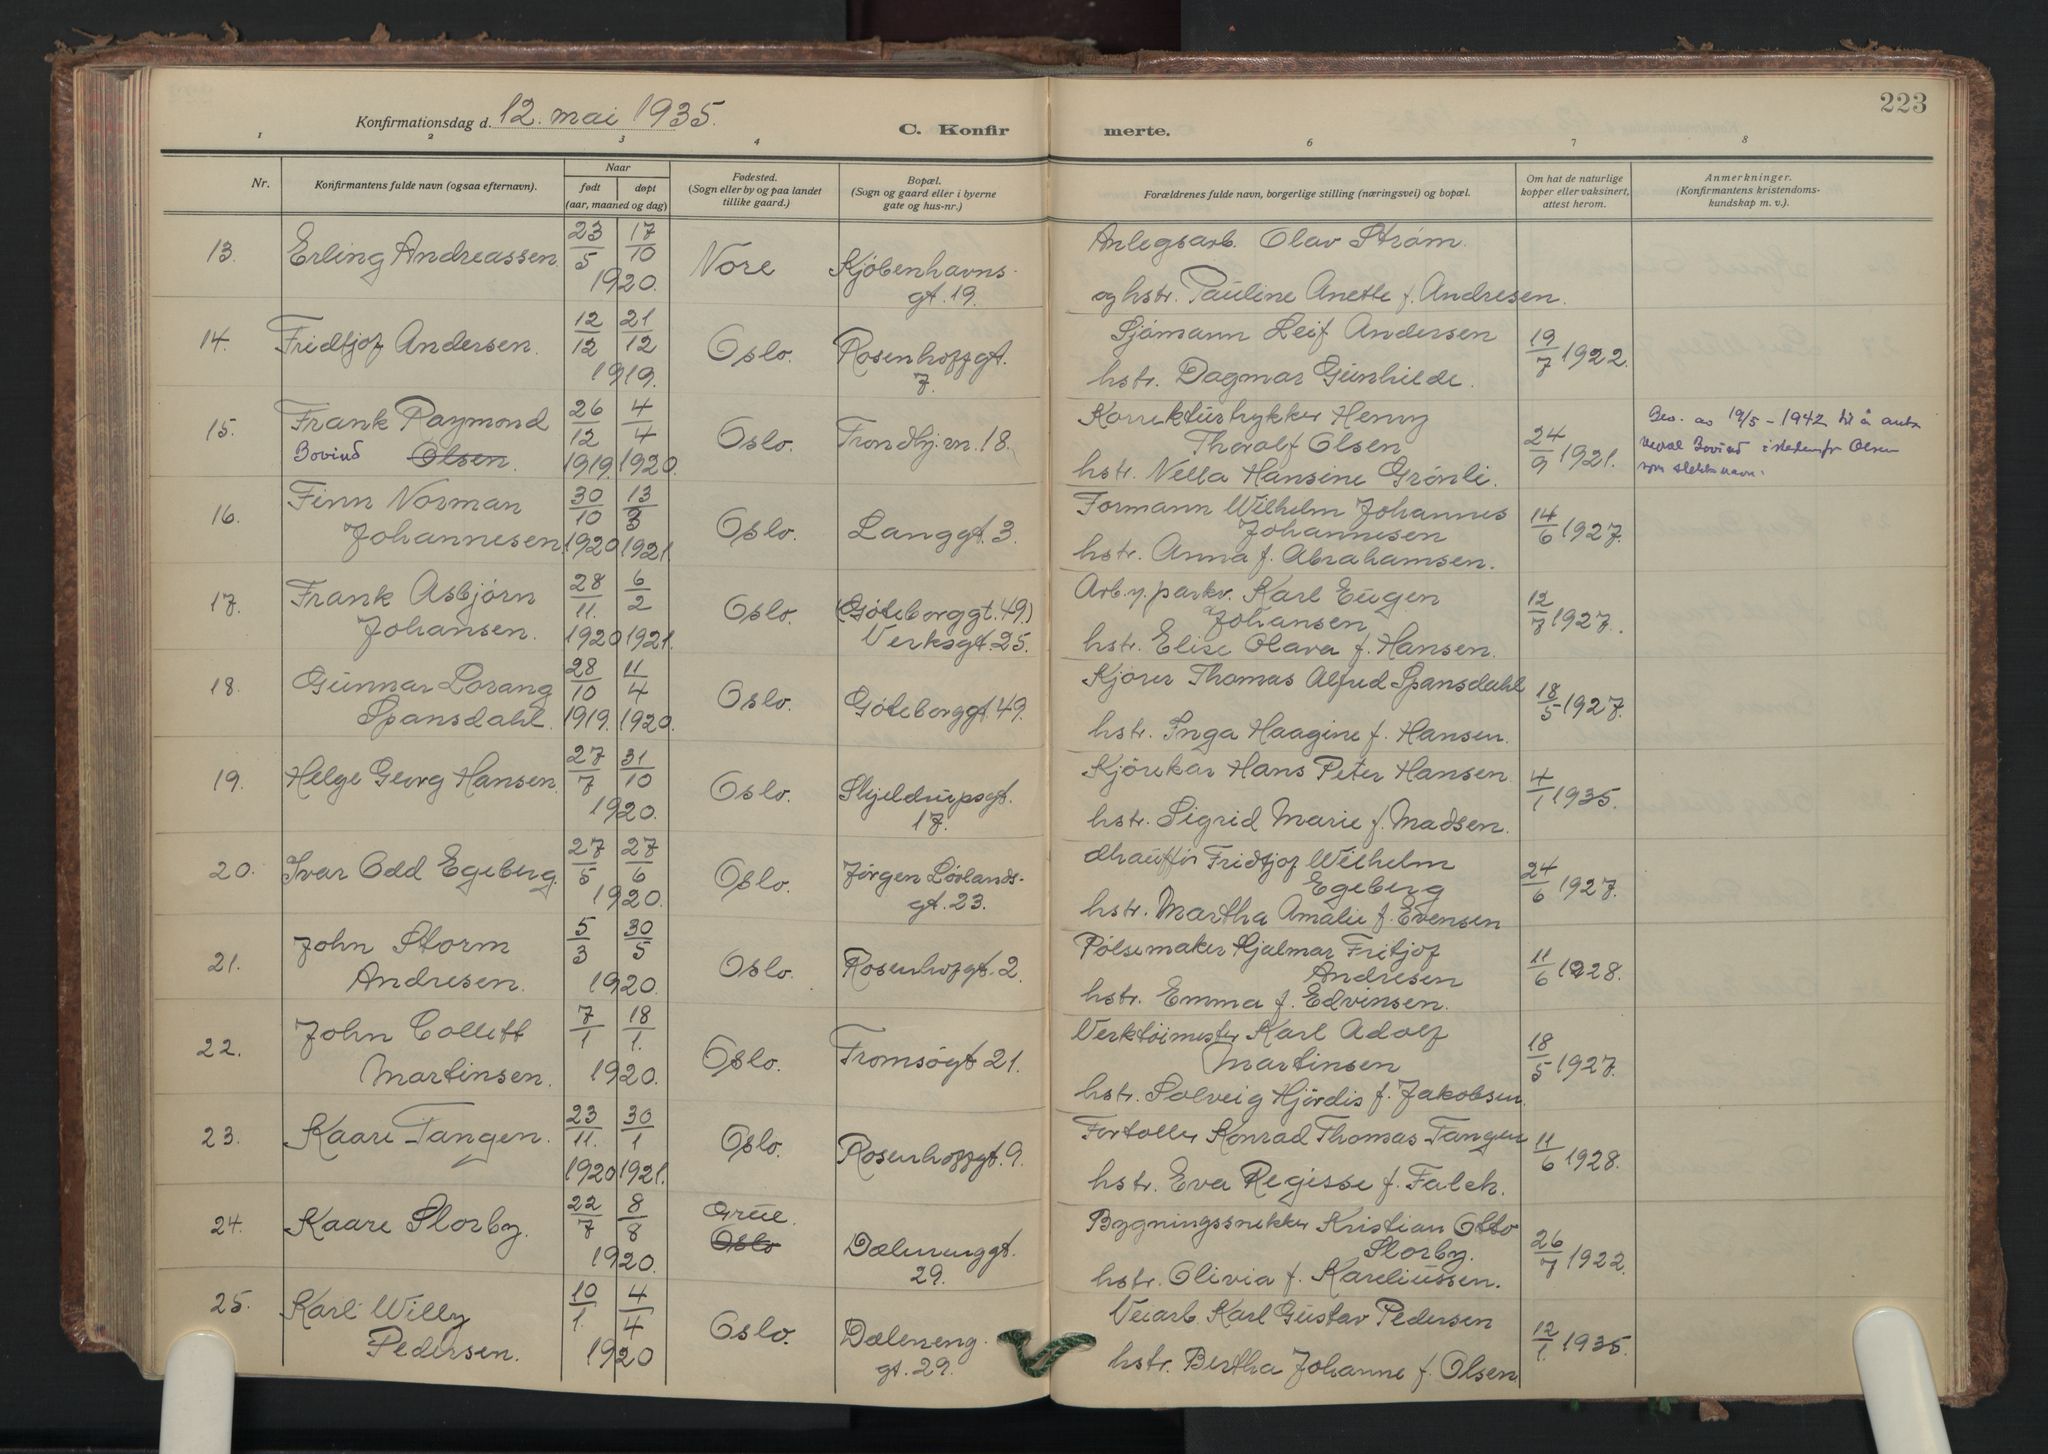 223
Konfirmationsdag d. 12. mai 1935.
C. Konfirmerte.
1 2 3 4 6 7 8
Nr.
Konfirmantens fulde navn (ogsaa efternavn).
Naar
født døpt
(aar, maaned og dag)
Fødested.
(Sogn eller by og paa landet
tillike gaard.)
Bopæl.
(Sogn og gaard eller i byerne
gate og hus-nr.)
Forældrenes fulde navn, borgerlige stilling (næringsvei) og bopæl.
Om hat de naturlige
kopper eller vaksinert,
attest herom.
Anmerkninger.
(Konfirmantens kristendoms-
kundskap m. v.).
13. Erling Andreassen 23/5 17/10 1920. Nore Kjöbenhavns-
gt. 19.
Anlegsarb. Olav Strøm
og hstr. Pauline Anette f. Andresen.
14. Fridtjof Andersen. 12/12 21/12 1919. Oslo. Rosenhoffgt.
7.
Sjömann Leif Andersen
hstr. Dagmar Gunhilde.
19/7 1922.
15. Frank Raymond
Bovind Olsen.
26/12 1919. 4/4 1920. Oslo. Trondhj.vn. 18.
Korrekturtrykker Henry
Thoralf Olsen
hstr. Nella Hansine Grönli.
24/9 1921.
Bev. av 19/5 - 1942 til å anta
navnet Bovind istedenfor Olsen
som slektsnavn.
16. Finn Norman
Johannesen
30/10 1920 13/3 1921. Oslo. Langgt. 3.
Formann Wilhelm Johannes
Johannesen
hstr. Anna f. Abrahamsen.
14/6 1927.
17. Frank Asbjörn
Johansen.
28/11. 1920 6/2 1921. Oslo. (Göteborggt. 49.)
Verksgt. 25.
Arb. v. parkv. Karl Eugen
Johansen
hstr. Elise Olava f. Hansen.
12/7 1927.
18. Gunnar Lorang
Spansdahl.
28/10 1919. 11/4 1920. Oslo. Göteborggt. 49.
Kjörer Thomas Alfred Spansdahl
hstr. Inga Haagine f. Hansen.
18/5 1927.
19. Helge Georg Hansen. 27/7 31/10 1920. Oslo. Skjeldrupsgt.
17.
Kjörekar Hans Peter Hansen
hstr. Sigrid Marie f. Madsen.
4/1 1935.
20. Ivar Odd Egeberg. 27/5 27/6 1920. Oslo. Jørgen Løvlands-
gt. 23.
Chauffør Fridtjof Wilhelm
Egeberg
hstr. Martha Amalie f. Evensen
24/6 1927.
21. John Storm
Andresen.
5/3 30/5 1920. Oslo. Rosenhofgt. 2.
Pølsemaker Hjalmar Fritjof
Andresen
hstr. Emma f. Edvinsen.
11/6 1928.
22. John Collett
Martinsen.
7/1 18/1. 1920. Oslo. Tromsögt 21.
Verktöimester Karl Adolf
Martinsen
hstr. Solveig Hjördis f. Jakobsen.
18/5 1927.
23. Kaare Tangen. 23/11. 1920 30/1 1921. Oslo. Rosenhoffgt. 9.
Fortoller Konrad Thomas Tangen
hstr. Eva Regisse f. Falch.
11/6 1928.
24. Kaare Slorby. 22/7 8/8 1920. Grue.
Oslo
Dælenenggt.
29.
Bygningssnekker Kristian Otto
Slorby.
hstr. Olivia f. Kareliussen.
26/7 1922.
25. Karl Willy
Pedersen.
10/1. 4/4 1920 Oslo. Dæleneng-
gt. 29.
Veiarb. Karl Gustav Pedersen
hstr. Bertha Johanne f. Olsen
12/1. 1935.